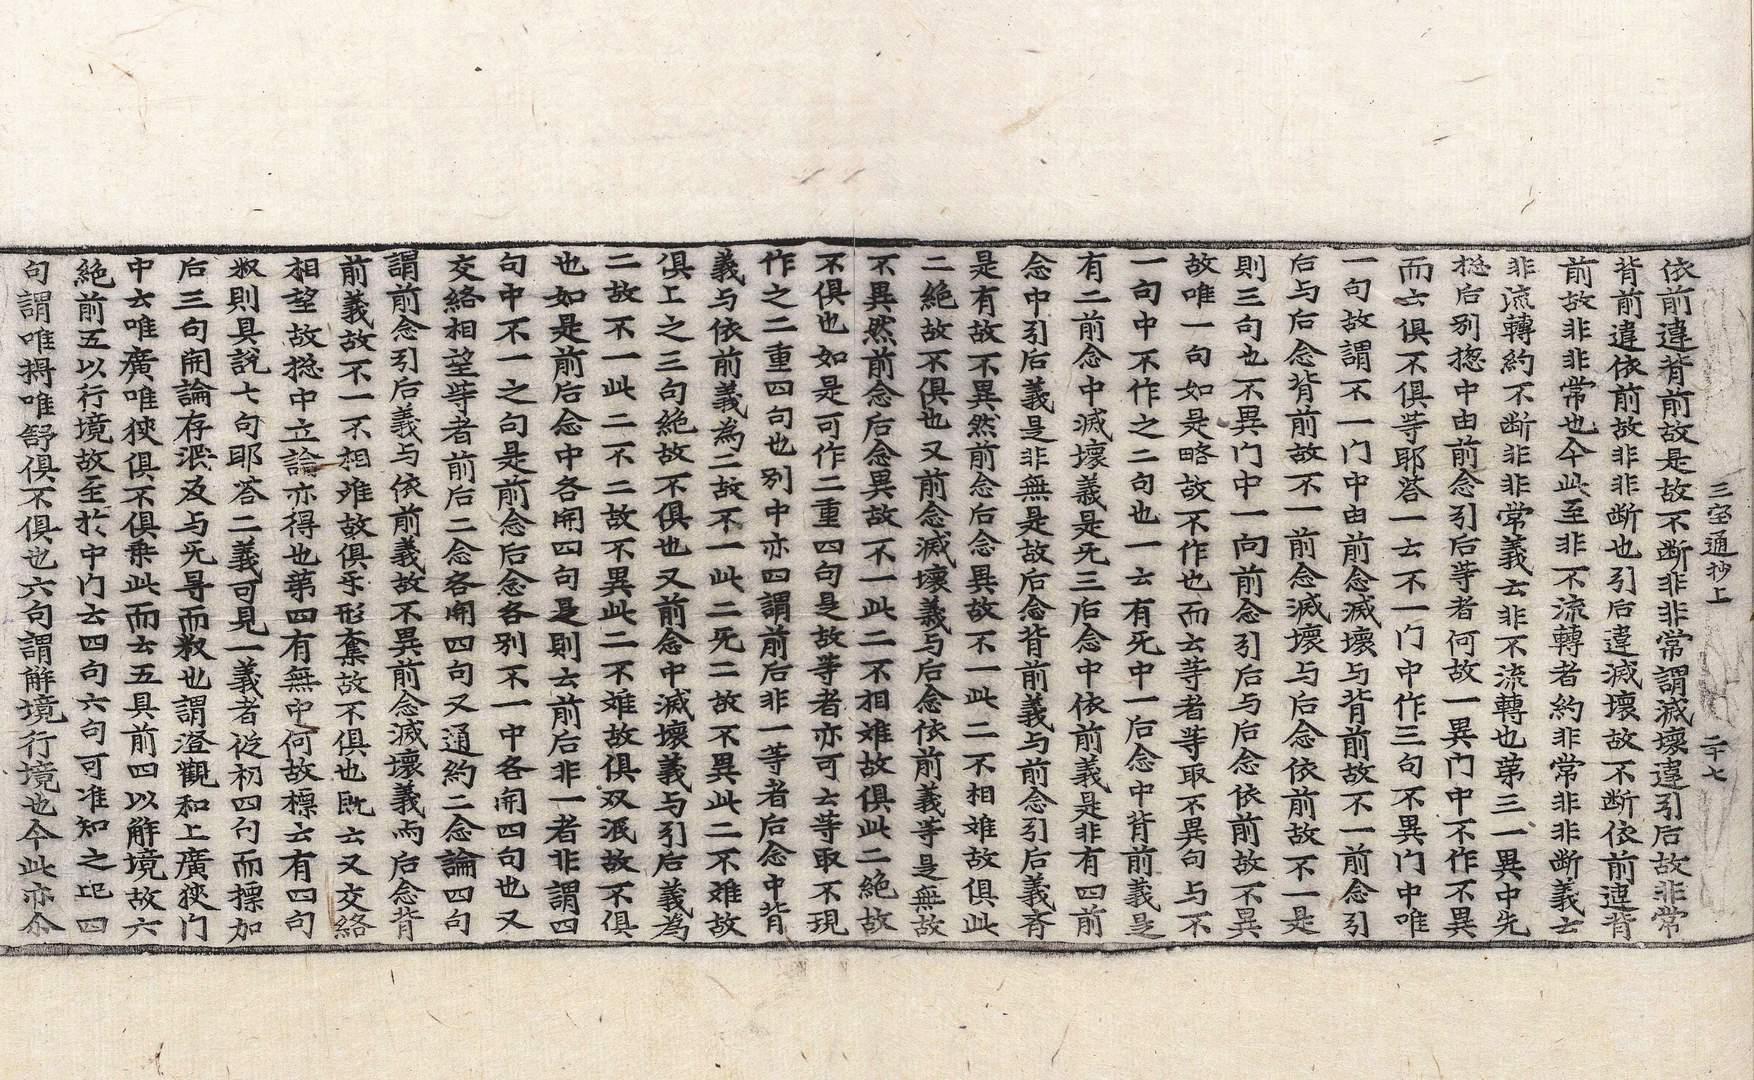 三宝通抄上　二十七
依前違背前故是故不断非非常謂滅壞違引后故非常
背前違依前故非非断也引后違滅壞故不断依前違背
前故非非常也今此至非不流轉者約非常非非断義云
非流轉約不断非非常義云非不流轉也苐三一異中先
捴后別捴中由前念引后等者何故一異門中不作不異
而云俱不俱等耶荅一云不一門中作三句不異門中唯
一句故謂不一門中由前念滅壞与背前故不一前念引
后与后念背前故不一前念滅壞与后念依前故不一是
則三句也不異门中一向前念引后与后念依前故不異
故唯一句如是略故不作也而云等者等取不異句与不
一句中不作之二句也一云有旡中一后念中背前義是
有二前念中滅壞義是旡三后念中依前義是非有四前
念中引后義是非無是故后念背前義与前念引后義齊
是有故不異然前念后念異故不一此二不相难故俱此
二絶故不俱也又前念滅壞義与后念依前義等是無故
不異然前念后念異故不一此二不相难故俱此二絶故
不俱也如是可作二重四句是故等者亦可云等取不現
作之二重四句也別中亦四謂前后非一等者后念中背
義与依前義為二故不一此二旡二故不異此二不难故
俱上之三句絶故不俱也又前念中滅壞義与引后義為
二故不一此二不二故不異此二不难故俱双泯故不俱
也如是前后念中各開四句是則云前后非一者非謂四
句中不一之句是前念后念各別不一中各開四句也又
交絡相望等者前后二念各開四句又通約二念論四句
謂前念引后義与依前義故不異前念滅壞義而后念背
前義故不一不相难故俱乎形奪故不俱也既云又交絡
相望故捴中立論亦得也苐四有無中何故標云有四句
𥼶則具説七句耶荅二義可見一義者從初四句而標加
后三句開論存泯及与旡㝵而𥼶也謂澄觀和上廣狹门
中云唯廣唯狹俱不俱乘此而云五具前四以解境故六
絶前五以行境故至於中门云四句六句可准知之記四
句謂唯摶唯舒俱不俱也六句謂解境行境也今此亦尒